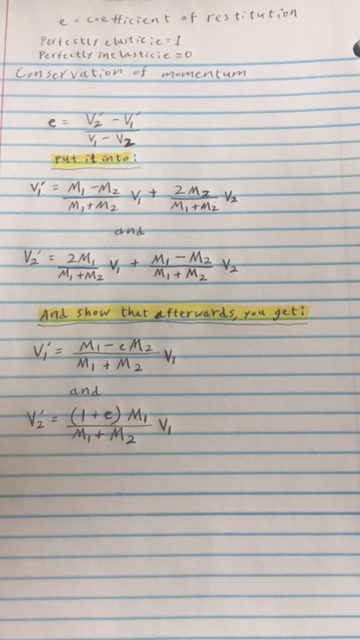 e = coefficient of restitution
Perfectly elastic: e = 1
Perfectly inelastic: e = 0
Conservation of momentum
e = (V₂′ - V₁′) / (V₁ - V₂)
Put it into:
V₁′ = (M₁ - M₂) / (M₁ + M₂) V₁ + 2M₂ / (M₁ + M₂) V₂
and
V₂′ = 2M₁ / (M₁ + M₂) V₁ + (M₁ - M₂) / (M₁ + M₂) V₂
And show that afterwards, you get:
V₁′ = (M₁ - eM₂) / (M₁ + M₂) V₁
and
V₂′ = (1 + e) M₁ / (M₁ + M₂) V₁